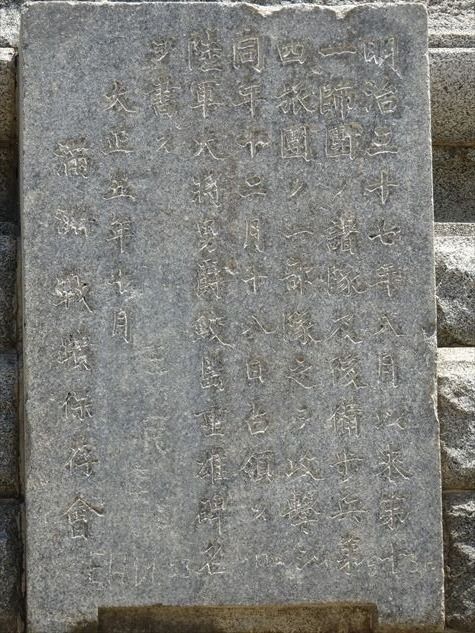 明治三十七年八月以来第十
一師團ノ諸隊及後備歩兵第
四旅團ノ一部隊之ヲ攻撃シ
同年十二月十八日占領ス
陸軍大将男爵鮫島重雄碑名
ヲ書ス
大正五年十月
滿洲戰蹟保存會